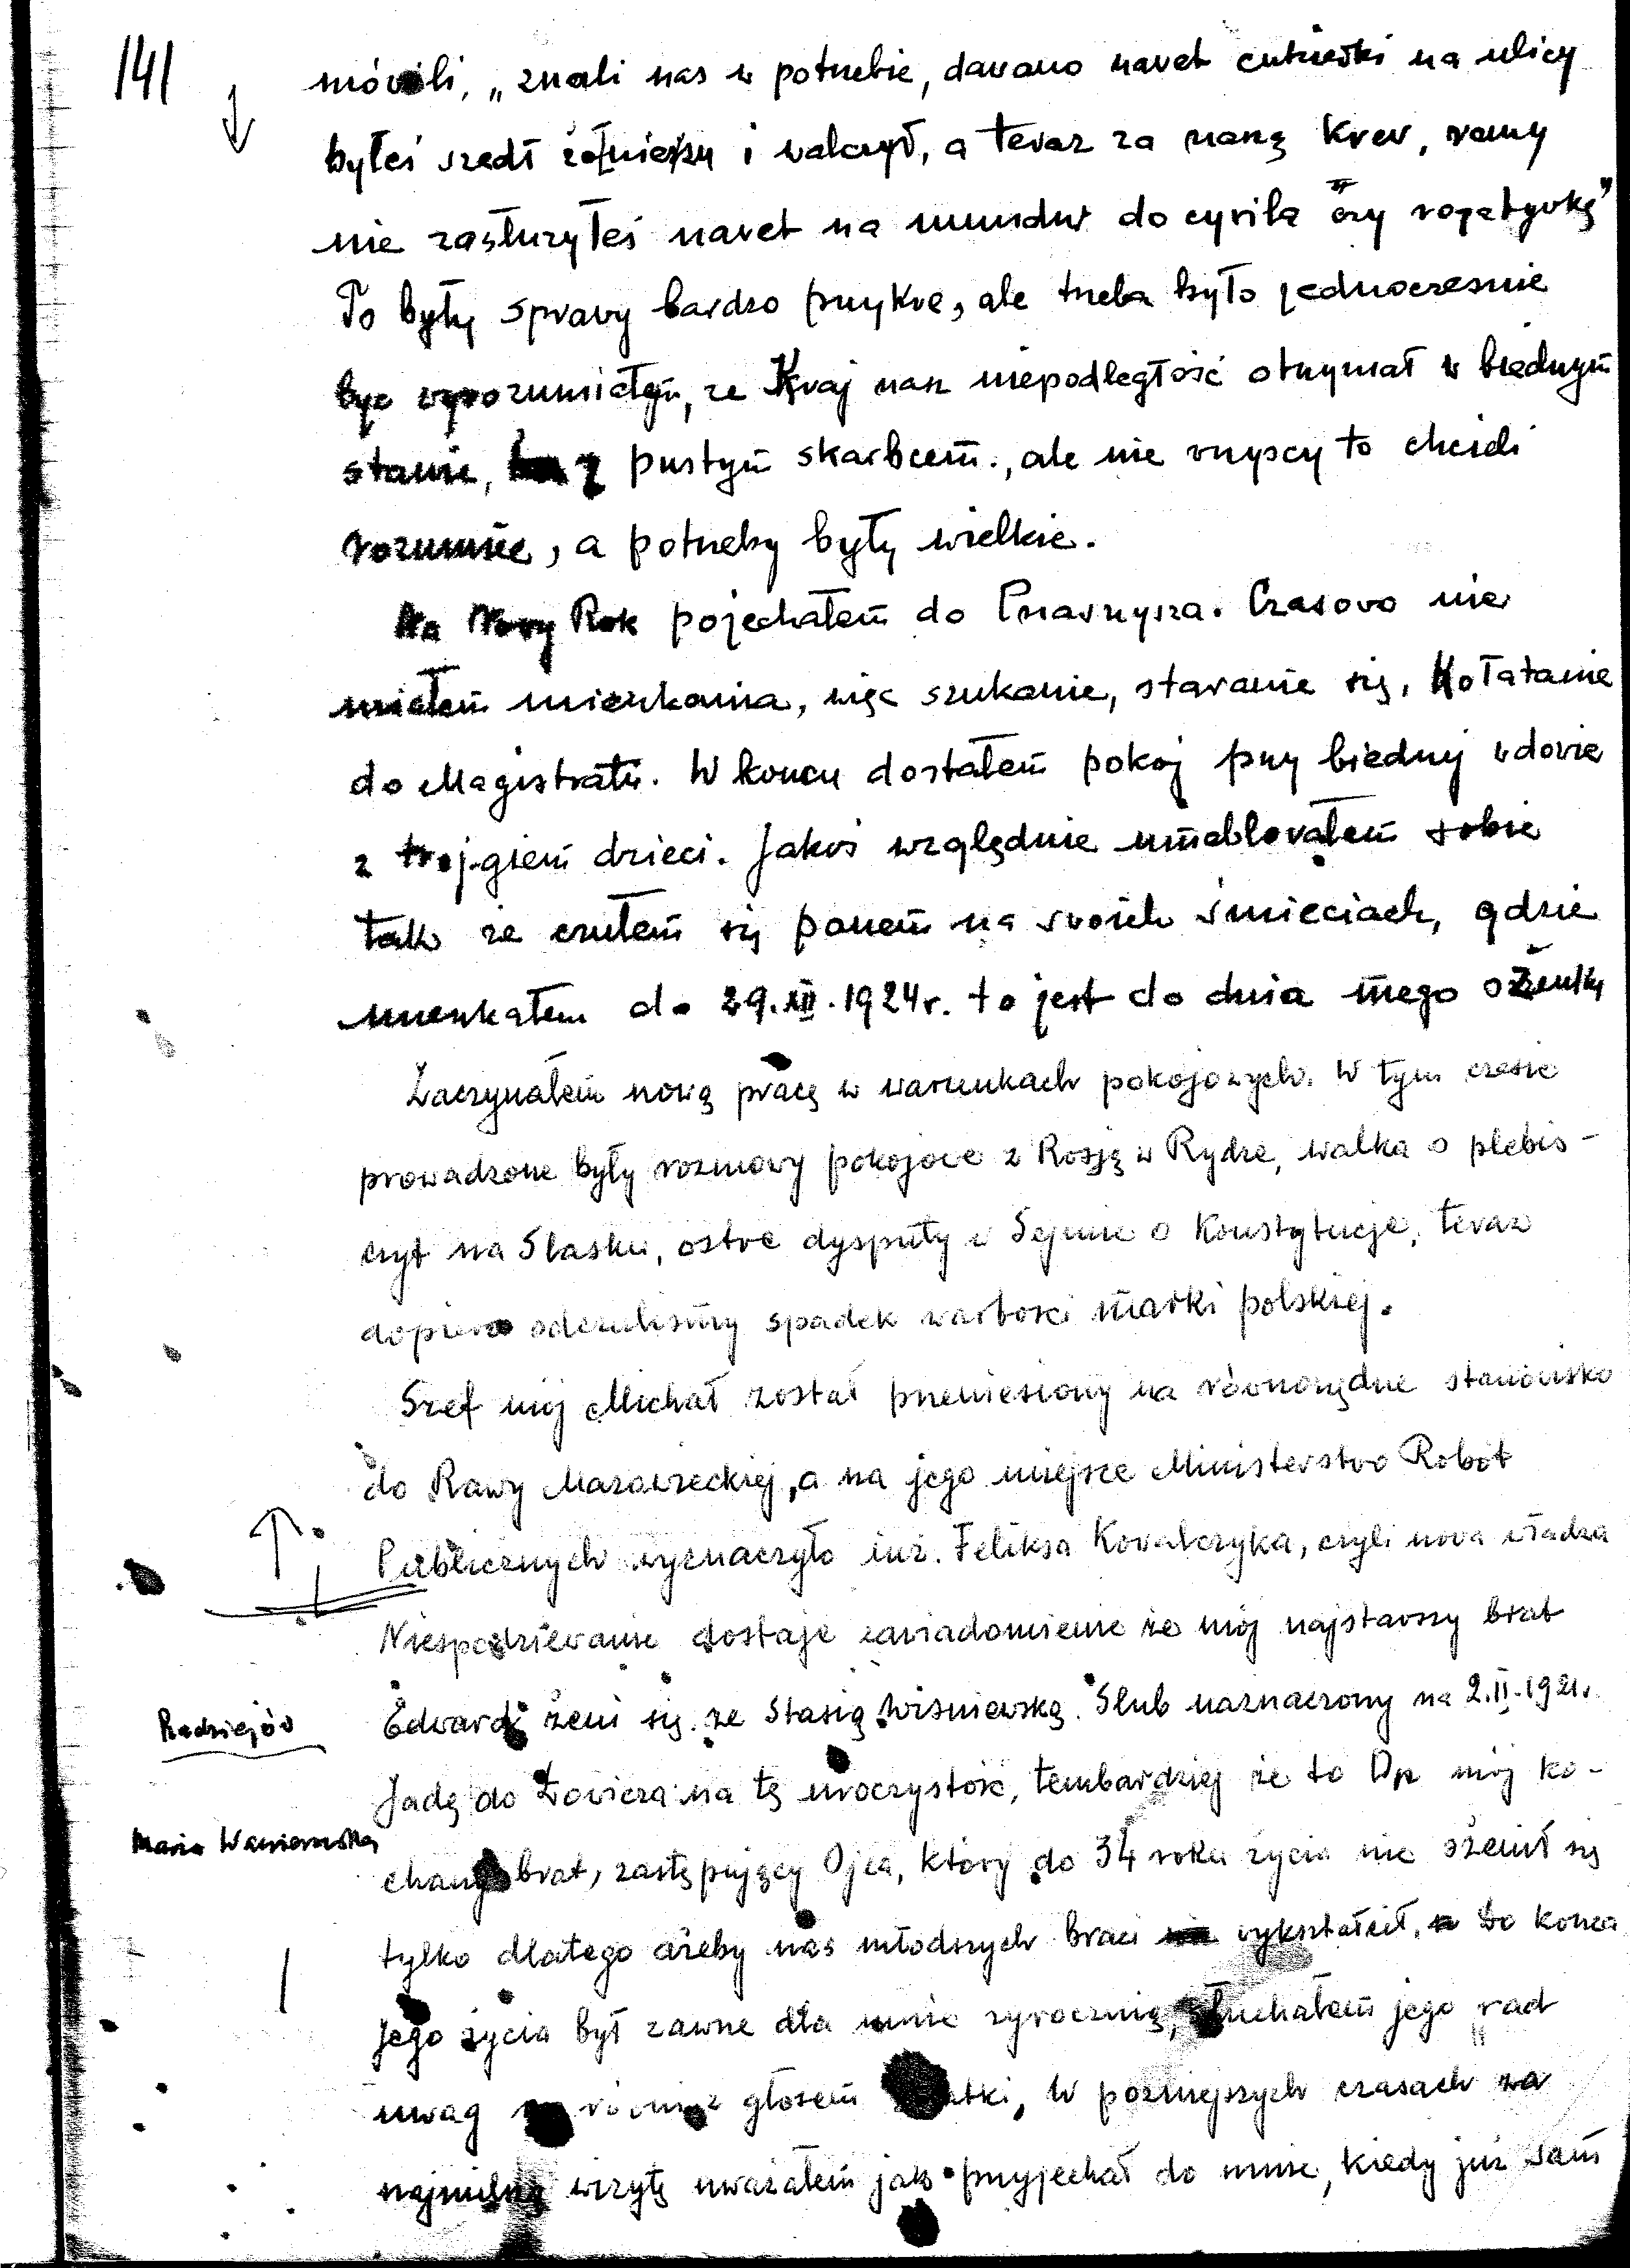 141
mówili, „znali nas w potrzebie, dawano nawet cukierki na ulicy
byłeś szedł żołnierzu i walczył, a teraz za naszą krew, ramy
nie zasłużyłeś nawet na mundur do cywila czy rogatywkę"
To były sprawy bardzo przykre, ale trzeba było jednoczesnie
być wyrozumiałym, ze Kraj nasz niepodległość otrzymał w biednym
stanie, z pustym skarbcem., ale nie wszyscy to chcieli
rozumieć, a potrzeby były wielkie.
Na Nowy Rok pojechałem do Przasnysza. Czasowo nie
miałem mieszkania, więc szukanie, staranie się, Kołatanie
do Magistratu. W koncu dostałem pokoj przy biednej wdowie
z trojgiem dzieci. Jakoś względnie umeblowałem sobie
tak ze czułem się panem na swoich śmieciach, gdzie
mieszkałem do 29.XII.1924r. to jest do dnia mego ożenku
Zaczynałem nową pracę w warunkach pokojowych. W tym czasie
prowadzone były rozmowy pokojowe z Rosją w Rydze, walka o plebis-
cyt na Slasku, ostre dysputy w Sejmie o Konstytucje, teraz
dopiero odczulismy spadek wartosci marki polskiej.
Szef mój Michał został przeniesiony na równorzędne stanowisko
do Rawy Mazowieckiej, a na jego miejsce Ministerstwo Robót
Publicznych wyznaczyło inż. Feliksa Kowalczyka, czyli nowa władza
Niespodziewanie dostaje zawiadomienie że mój najstarszy brat
Radziejów
Edward żeni się ze Stasią Wisniewską. Slub naznaczony na 2.II.1921.
Jadę do Łowicza na tę uroczystość, tembardziej że to mój ko-
Maria
chany brat, zastępujący Ojca, który do 34 roku życia nie ożenił się
tylko dlatego ażeby nas młodszych braci wykształcił. Do konca
jego życia był zawsze dla mnie wyrocznią, słuchałem jego rad
uwag równiez głosem Matki, W pozniejszych czasach za
najmilszą wizytę uważałem jak przyjechał do mnie, kiedy już sam